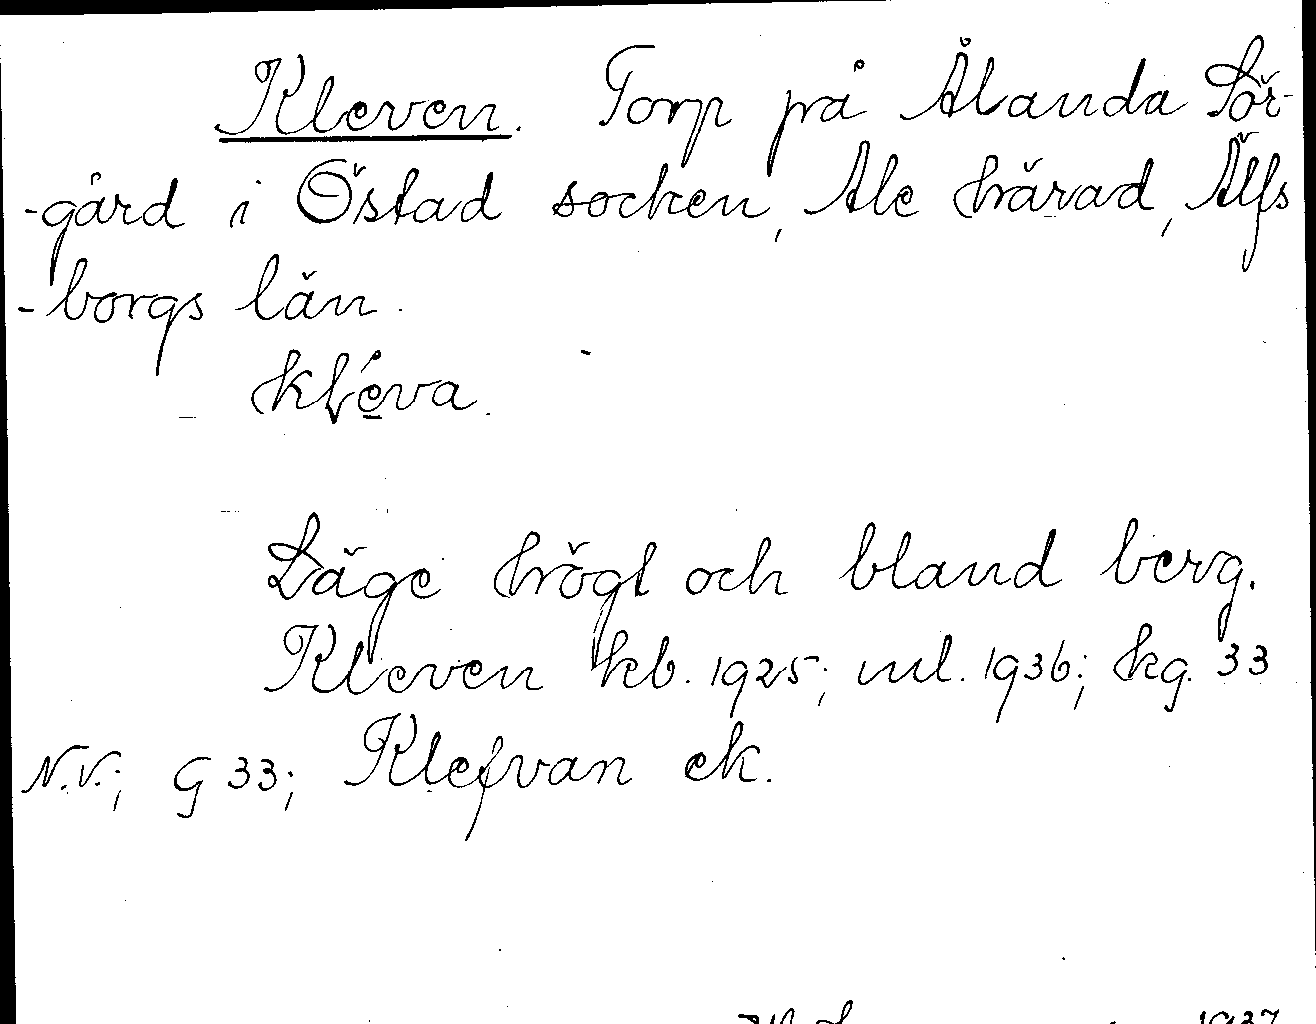 Kleven. Torp på Ålanda Sör-
-gård i Östad socken, Ale härad, Älfs
-borgs län.
kléva.
Läge högt och bland berg.
Kleven kb. 1925; ml. 1936; kg. 33
N.V.; G 33; Klefvan ek.
1937